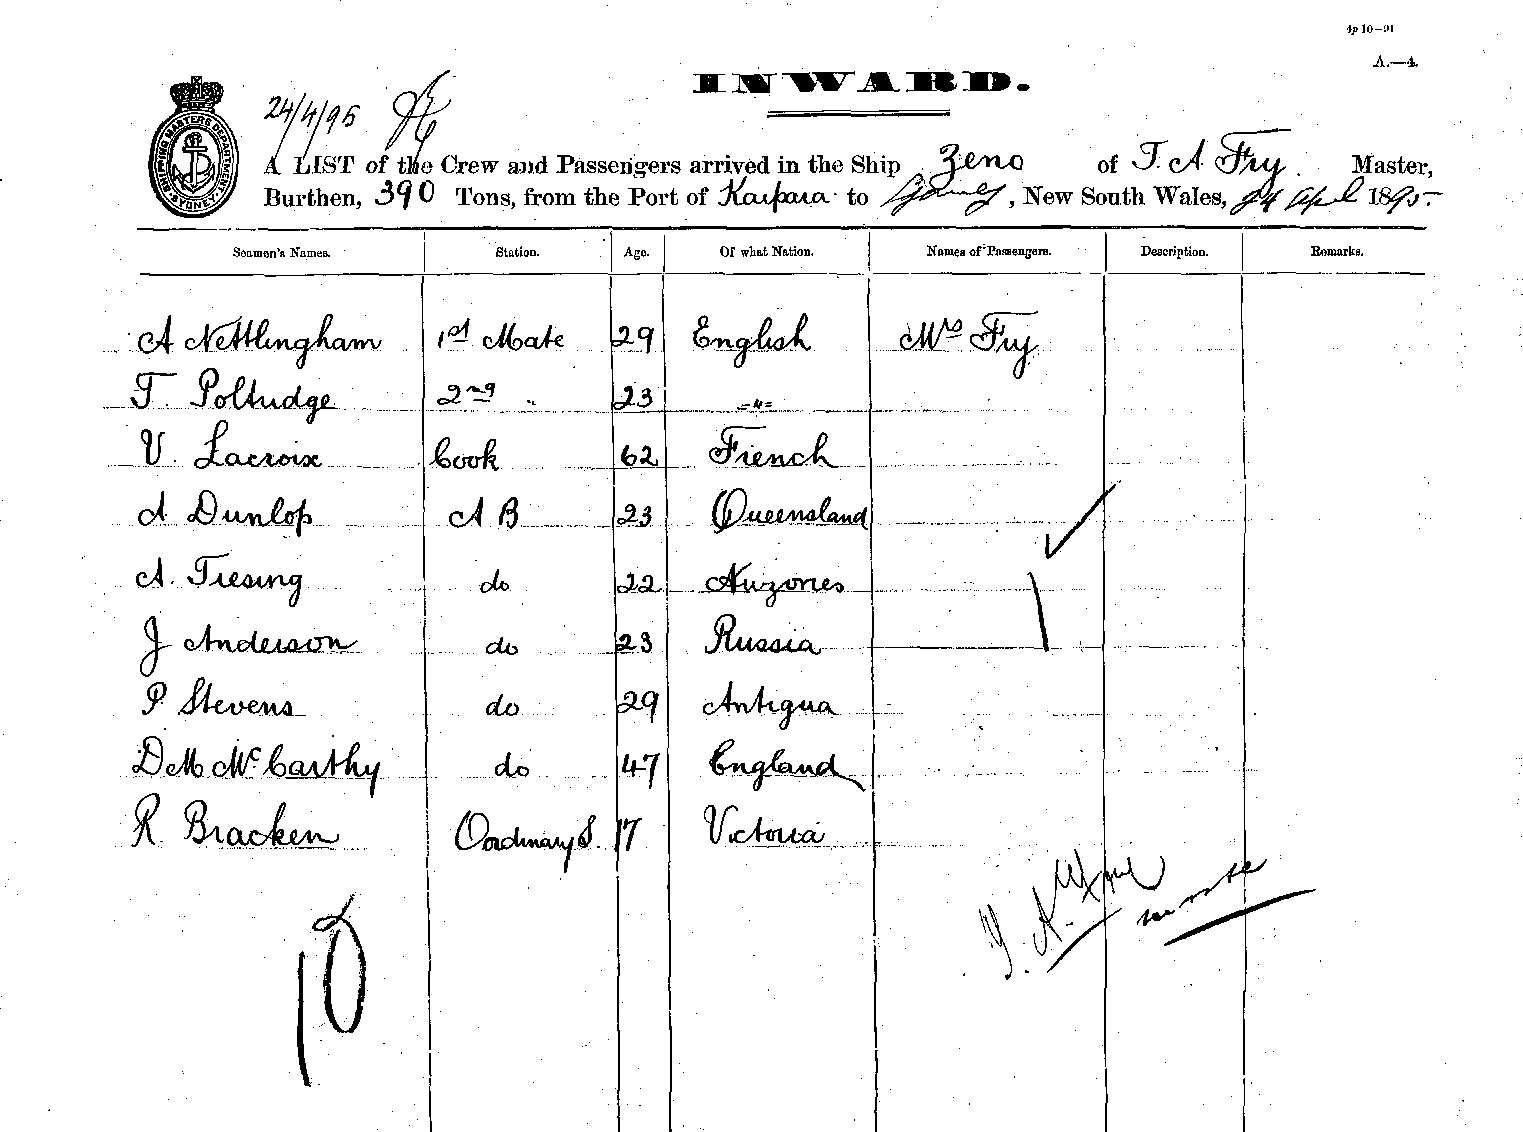 4p 10—91
A.—4.
INWARD.
24/4/95
SHIPPING MASTERS DEPARTMENT SYDNEY
A LIST of the Crew and Passengers arrived in the Ship Zeno of T. A Fry. Master,
Burthen, 390 Tons, from the Port of Kaipara to Sydney, New South Wales, 24 April 1895.
Seamen's Names. Station. Age. Of what Nation. Names of Passengers. Description. Remarks.
A Nettlingham 1st Mate 29 English Mrs Fry
T. Poltudge 2nd " 23 "
V. Lacroix Cook 62 French
A Dunlop A B 23 Queensland
A. Tresing do 22 
J Anderson do 23 Russia
P Stevens do 29 Antigua
D M McCarthy do 47 England
R Bracken Ordinary S. 17 Victoria
10
master